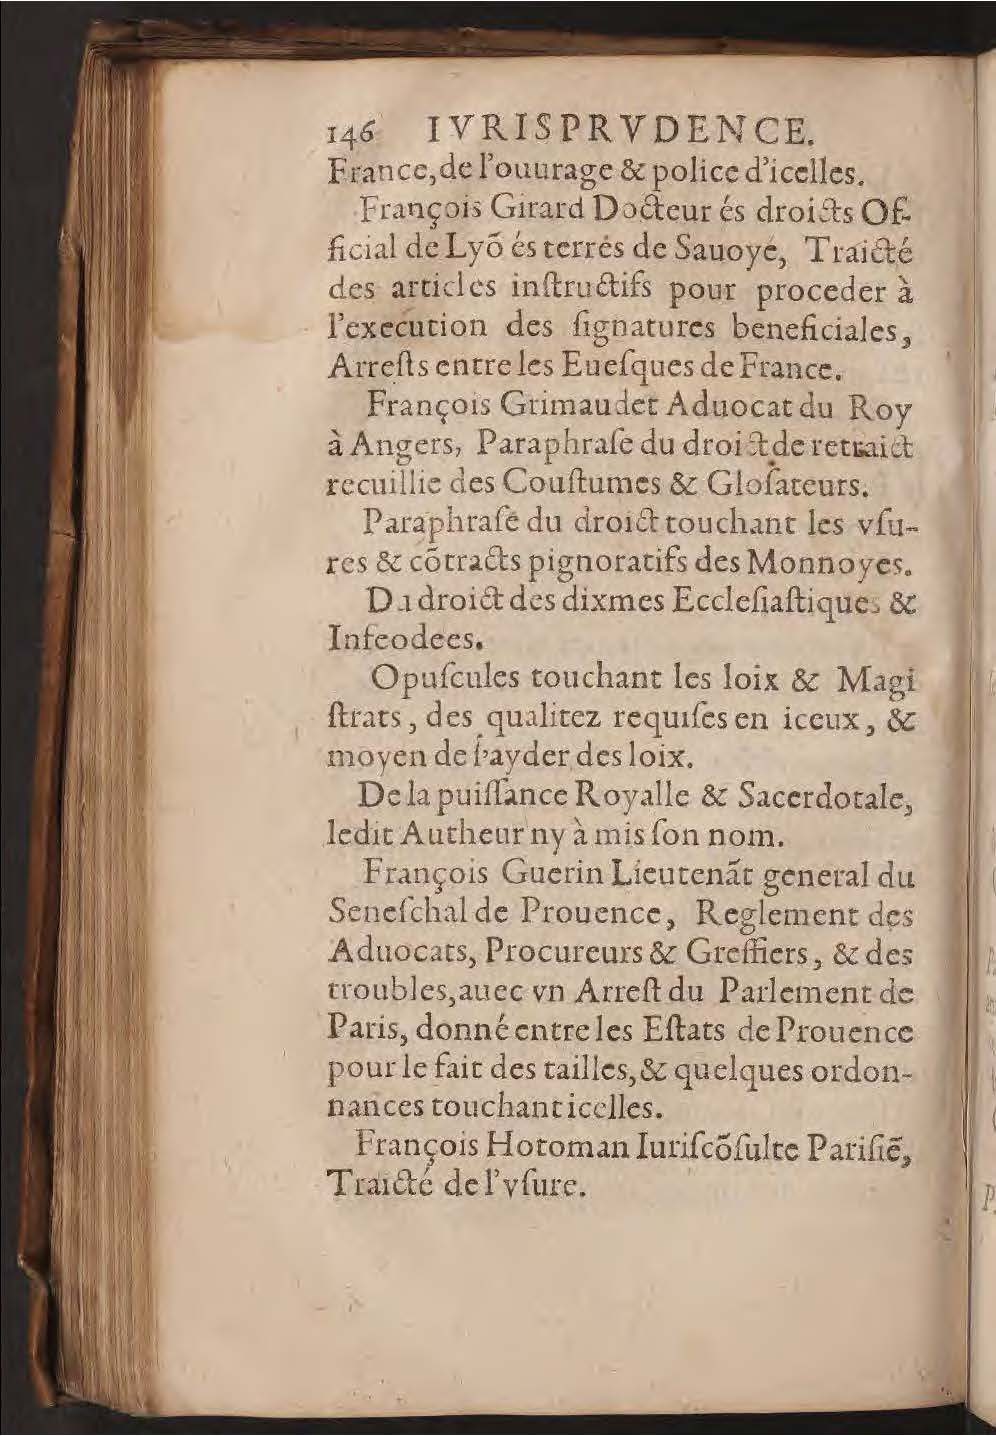 146 IVRISPRVDENCE.
France,de l'ouurage & police d'icelles.
François Girard Docteur és droicts Of-
ficial de Lyõ és terrés de Sauoye, Traicté
des articles inſtructifs pour proceder à
l'execution des ſignatures beneficiales,
Arreſts entre les Eueſques de France.
François Grimaudet Aduocat du Roy
à Angers, Paraphraſe du droict de retraict
recuillie des Couſtumes & Gloſateurs.
Paraphraſe du droict touchant les vſu-
res & cõtracts pignoratifs des Monnoyes.
Du droict des dixmes Eccleſiaſtiques &
Infeodees.
Opuſcules touchant les loix & Magi
ſtrats, des qualitez requiſes en iceux, &
moyen de ſ'ayder des loix.
De la puiſſance Royalle & Sacerdotale,
ledit Autheur ny à mis ſon nom.
François Guerin Lieutenãt general du
Seneſchal de Prouence, Reglement des
Aduocats, Procureurs & Greffiers, & des
troubles,auec vn Arreſt du Parlement de
Paris, donné entre les Eſtats de Prouence
pour le fait des tailles,& quelques ordon-
nances touchant icelles.
François Hotoman Iuriſcõſulte Pariſiẽ,
Traicté de l'vſure.